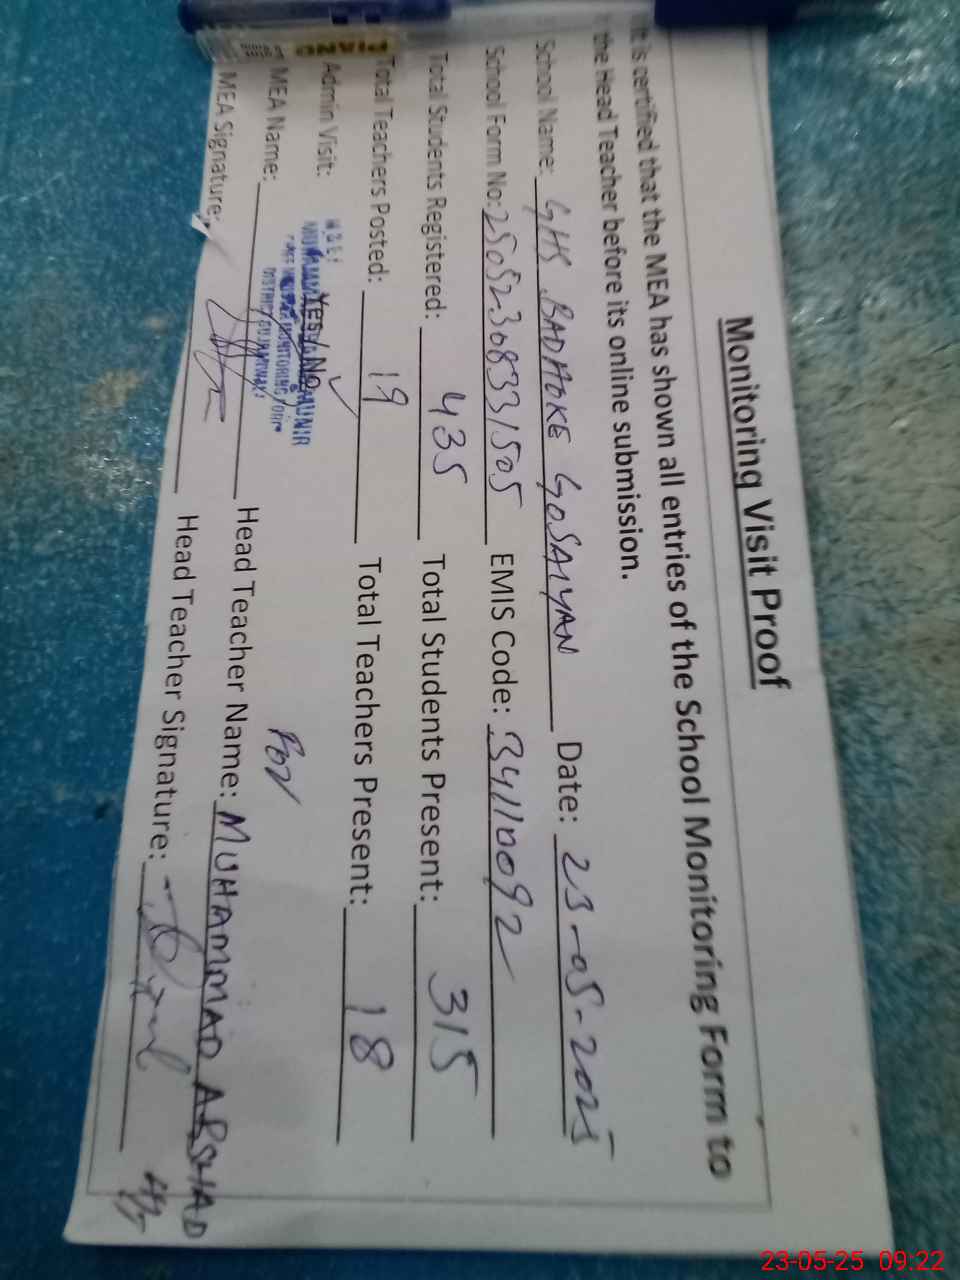 Monitoring Visit Proof
It is certified that the MEA has shown all entries of the School Monitoring Form to
the Head Teacher before its online submission.
School Name: GHS BADHOKE GOSAIYAN Date: 23-05-2025
School Form No: 25052308331505 EMIS Code: 34110092
Total Students Registered: 435 Total Students Present: 315
Total Teachers Posted: 19 Total Teachers Present: 18
Admin Visit: Yes / No ✓
MEA Name: Head Teacher Name: MUHAMMAD ARSHAD
MEA Signature: Head Teacher Signature:
MUNIR
MONITORING
DISTRICT GUJRANWALA
PIANO
23-05-25 09:22